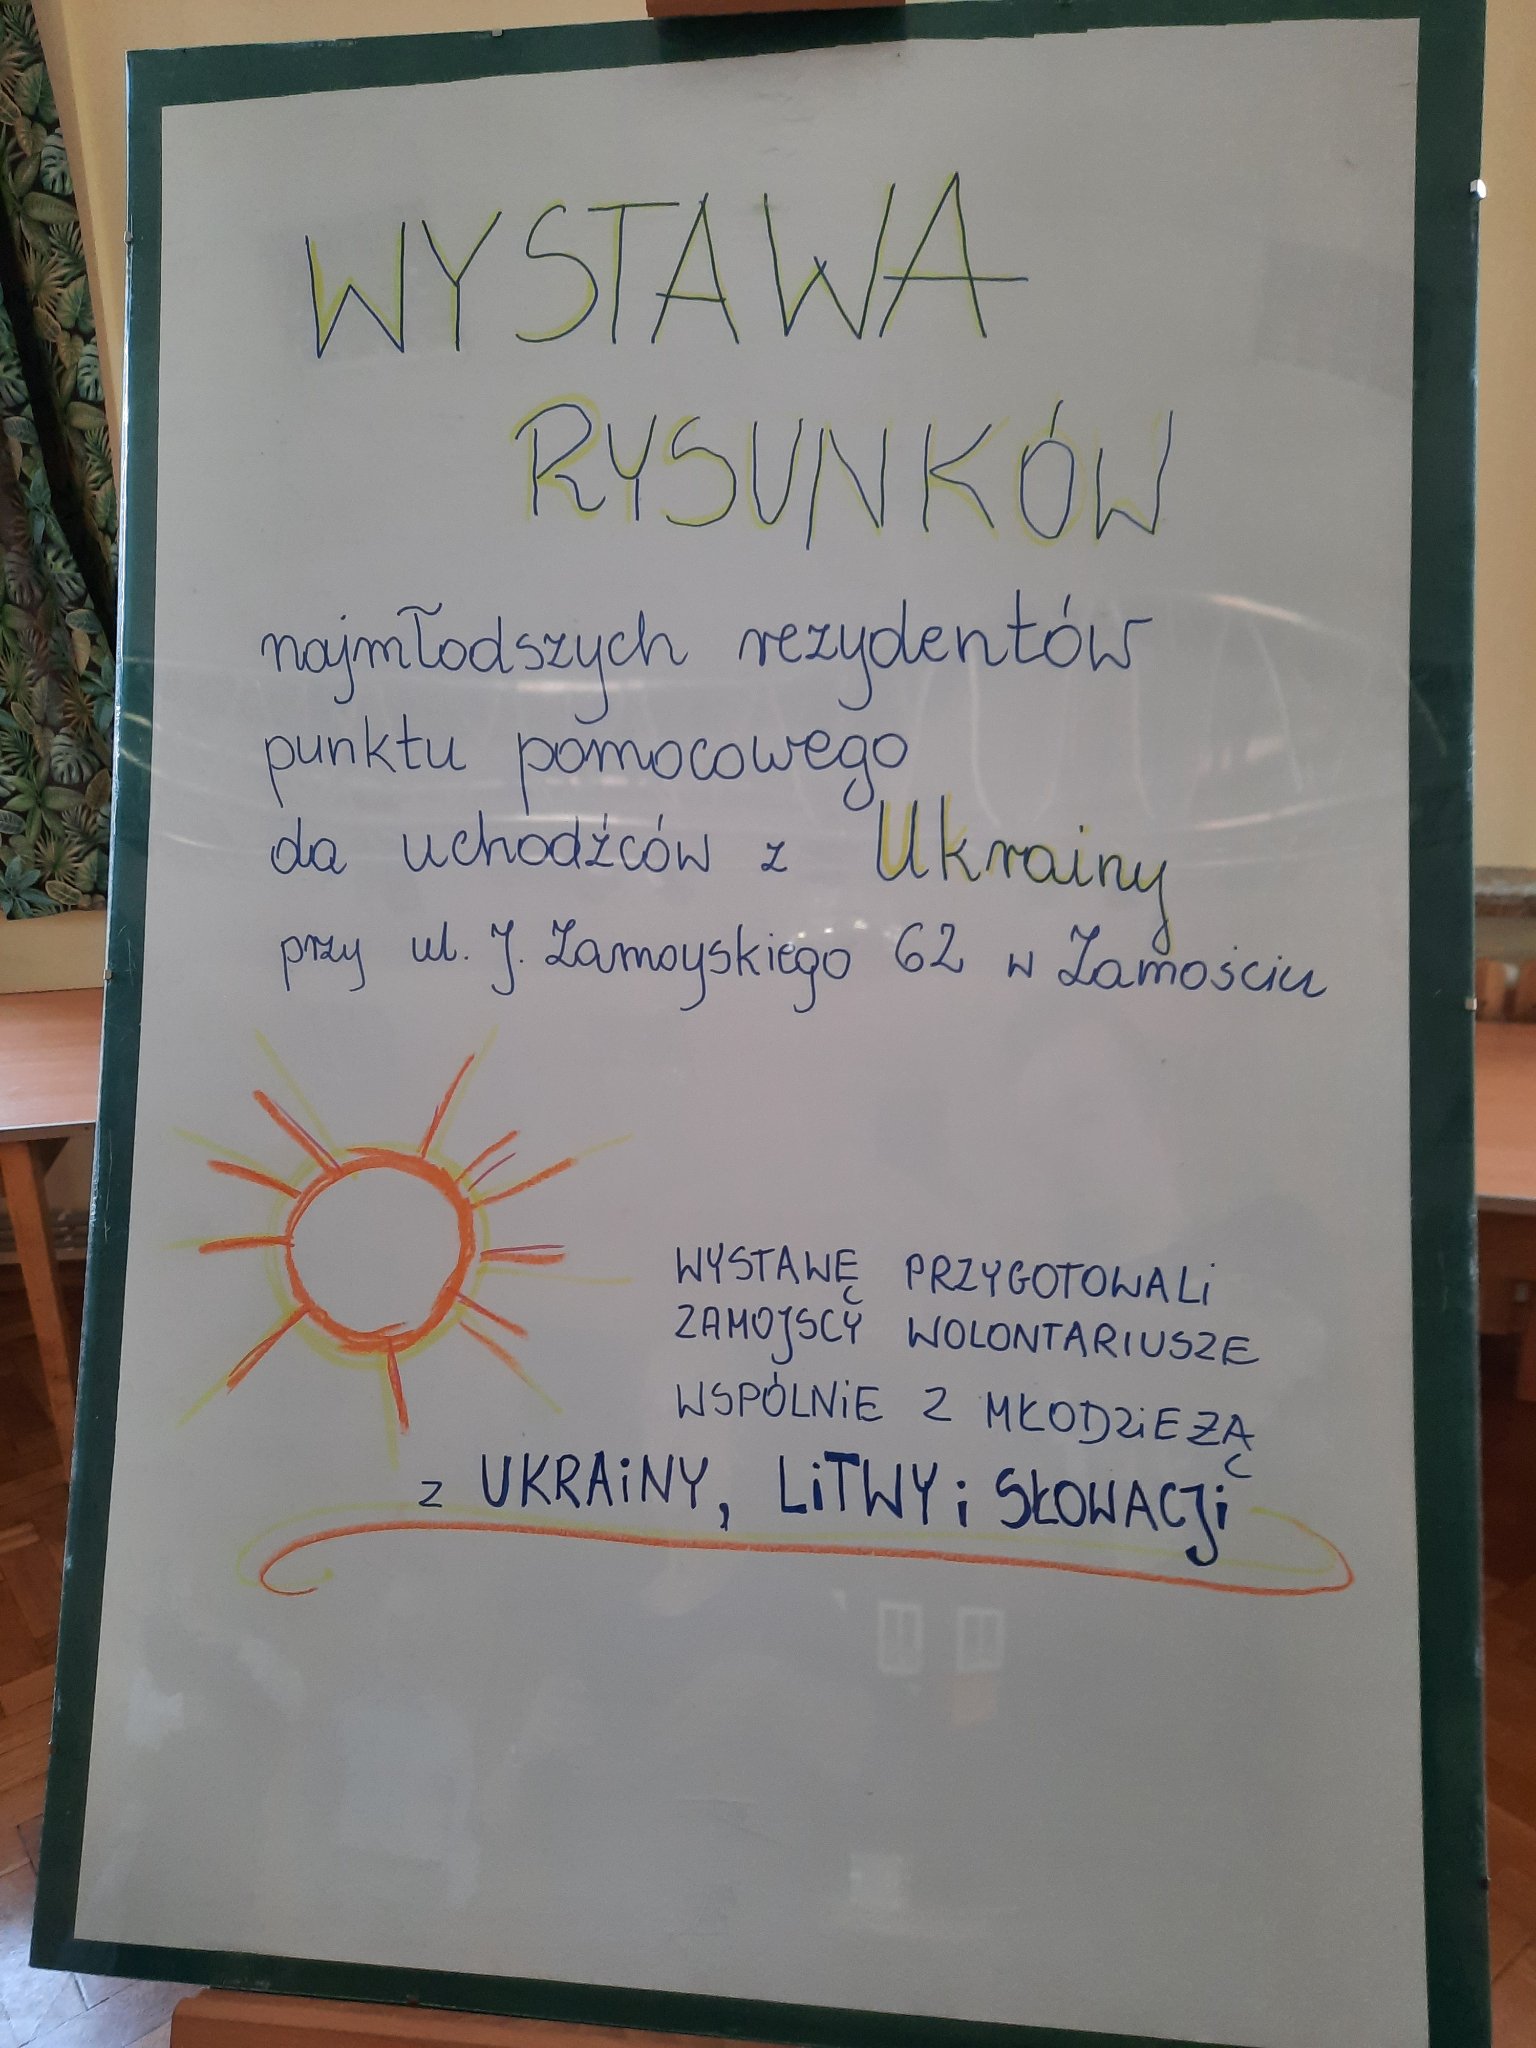 WYSTAWA
RYSUNKÓW
najmłodszych rezydentów
punktu pomocowego
da uchodźców z Ukrainy
przy ul. J. Zamoyskiego 62 w Zamościu
WYSTAWĘ PRZYGOTOWALi
ZAMOJSCY WOLONTARIUSZE
WSPÓLNiE Z MŁODZiEŻĄ
z UKRAiNY, LiTWY i SŁOWACJi